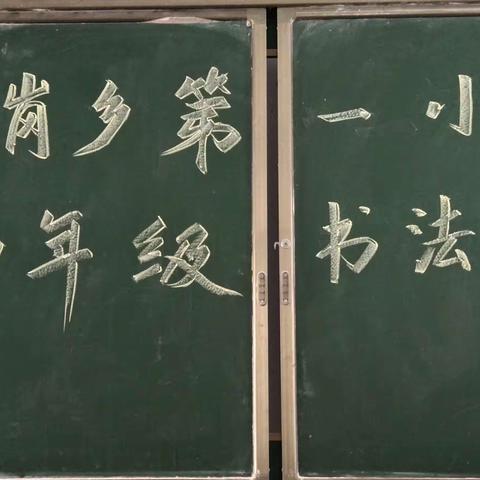 岗乡第一小
年级书法